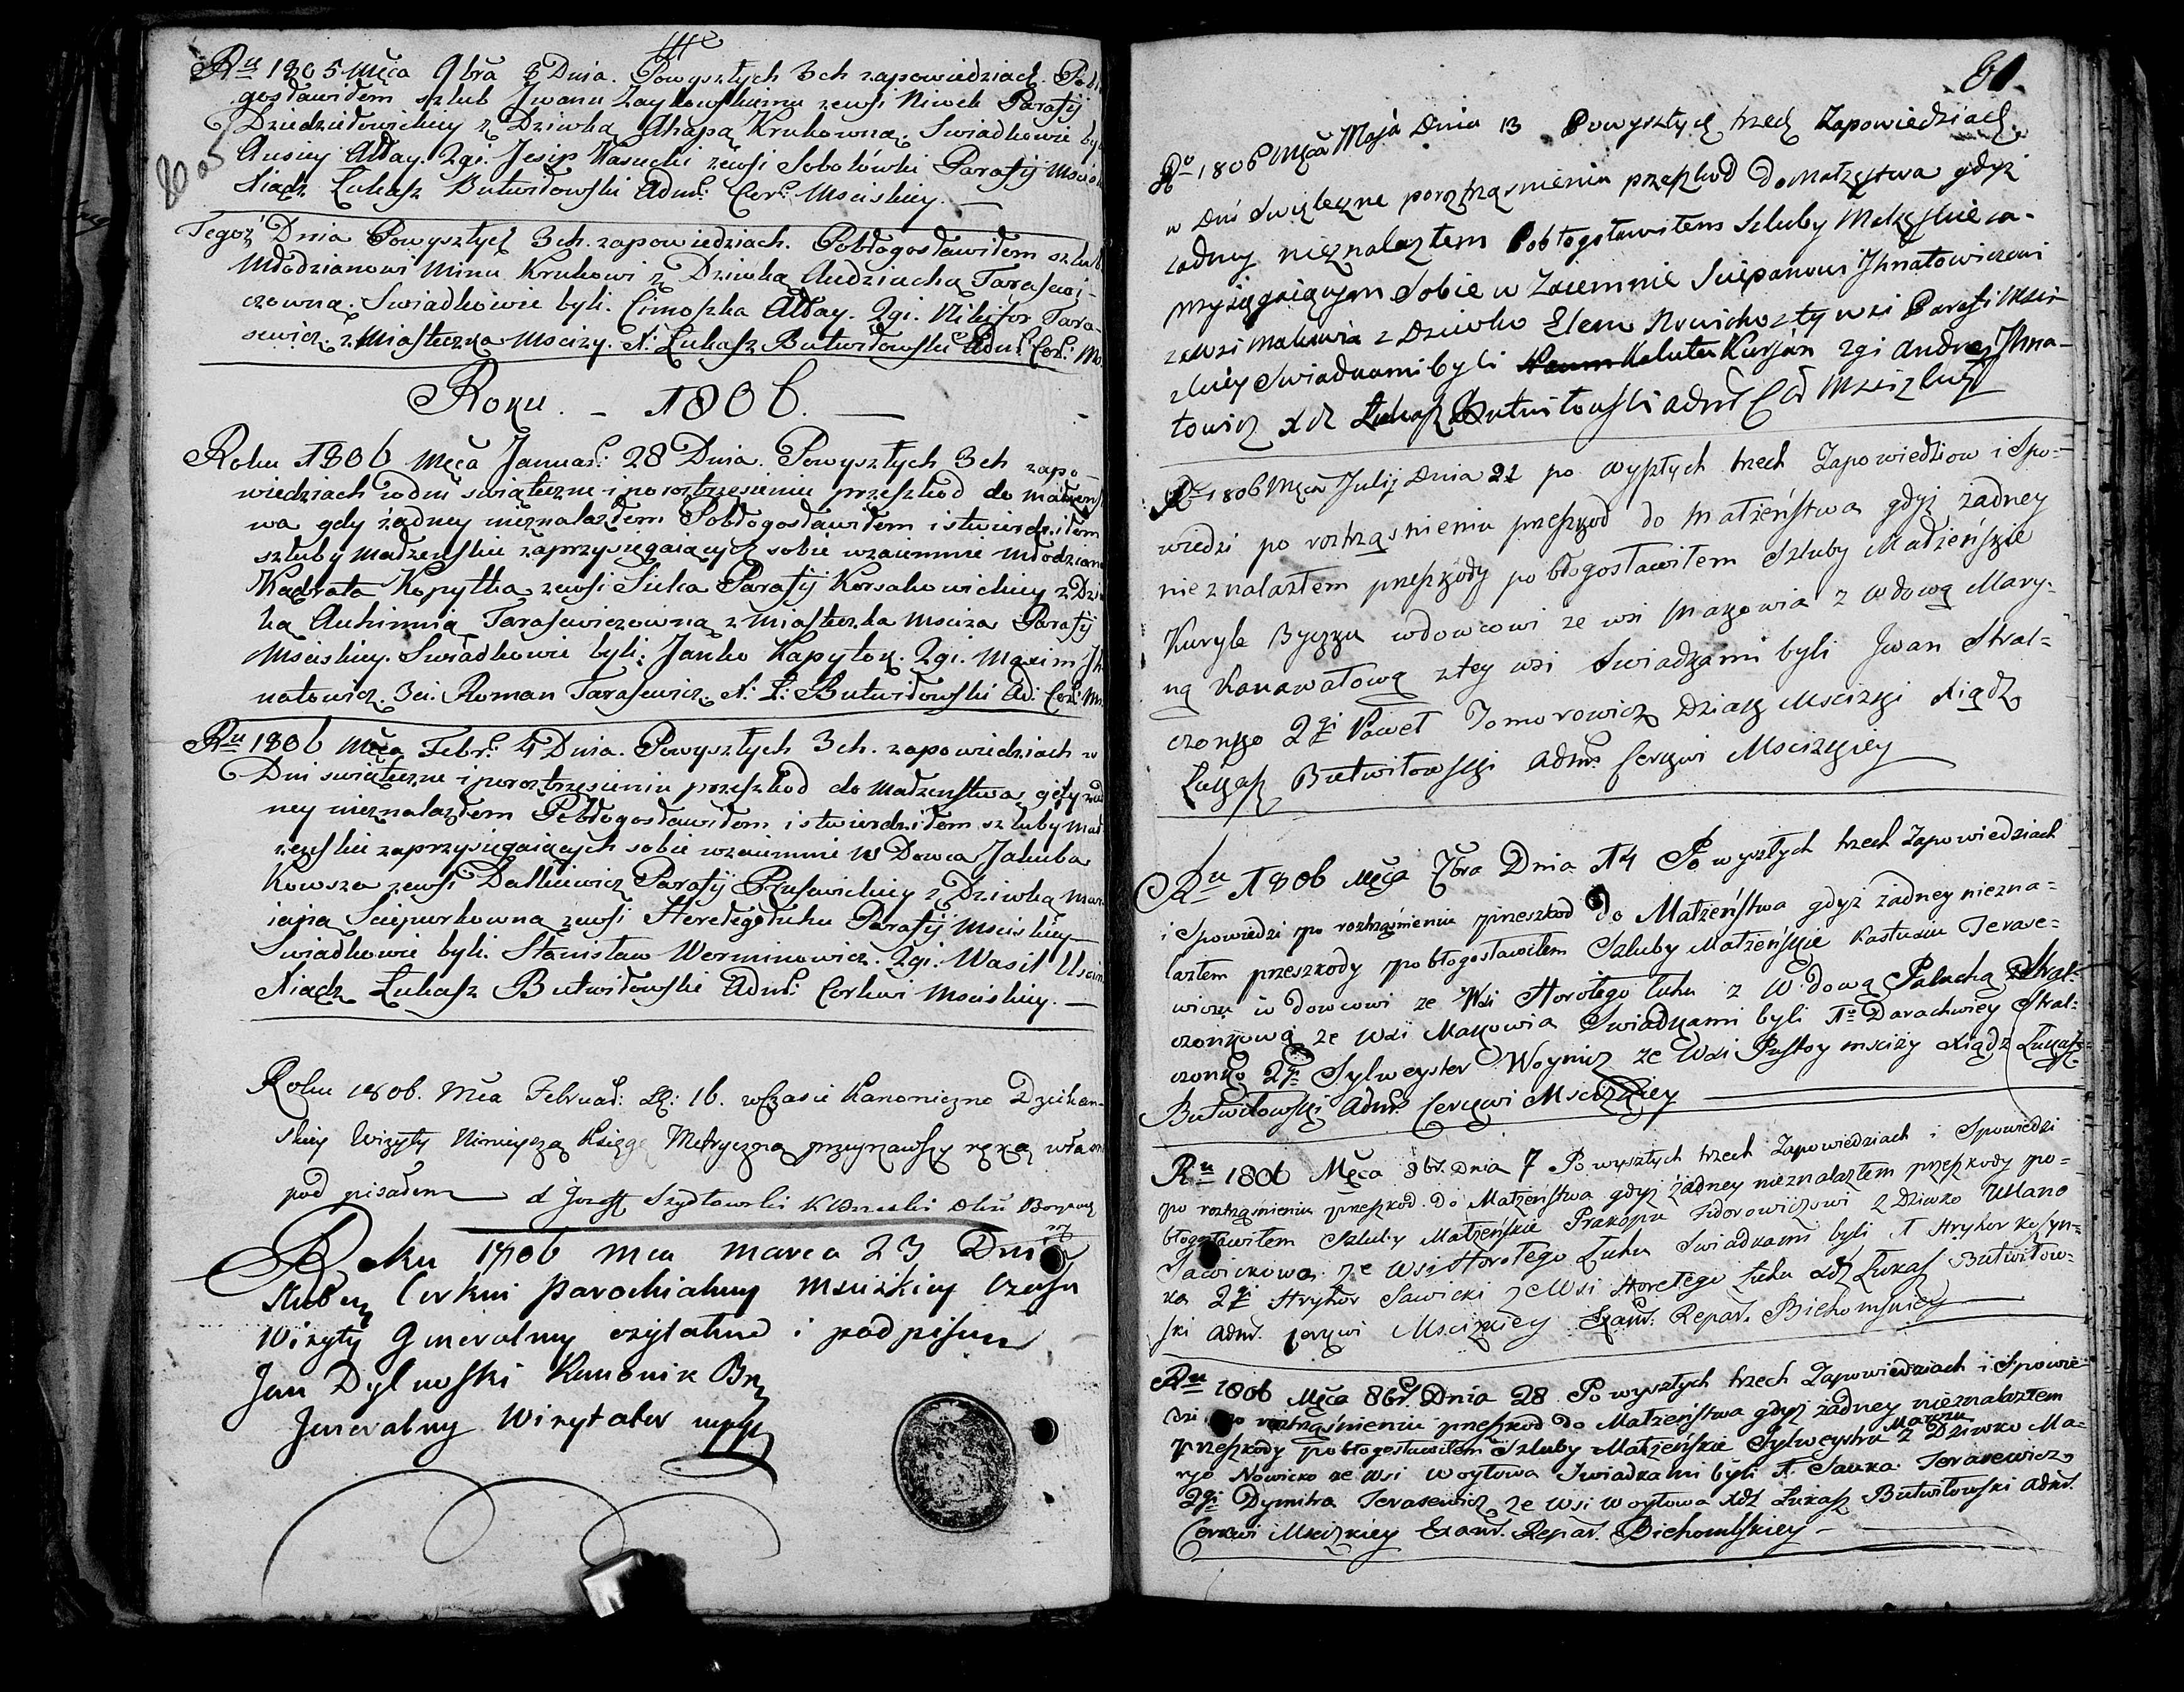 Ru 1805 Męca 9bra 8 Dnia. Powyszłych 3ch zapowiedziach. Pobło
gosławiłem szlub Jwanu Zaykowskiemu zewsi Niwek Parafij
Dziedziełowickiey z Dziwką Ahapą Krukowną. Swiadkowie by
Ausiey Ałday. 2gi. Jesip Kasucki zewsi Sobolówki Parafij
Xiądz Łukasz Butwiłowski Adm: Cer: Msciskiey.
80
Tegoż Dnia Powyszłych 3ch. zapowiedziach. Pobłogosławiłem szlub
Młodzianowi Minu Krukowi z Dziwką Audziucha Tarasewi-
czowną. Swiadkowie byli. Cimoszka Ałday. 2gi. Nikifor Tara-
sewicz. z Miasteczka Mscizy. X: Łukasz Butwiłowski Adm: Cer: Ms
Roku. - 1806.
Roku 1806 Męca Januar: 28 Dnia. Powyszłych 3ch zapo-
wiedziach wdni swiąteczne i porostrzęsieniu przeszkod do małżenst
wa gdy żadney nieznalazłem Pobłogosławiłem istwierdziłem
szluby madżenskie zaprzysięgaiących sobie wzaiemnie Młodziana
Kądrata Kopytka zewsi Suka Parafij Korsakowickiey z Dziw
ką Auhinnią Tarasewiczowną z Miasteczka Msciza Parafij
Msciskiey. Swiadkowie byli: Janko Kapytok. 2gi. Maxim Jh
natowicz. 3ci. Roman Tarasewicz. X: Ł: Butwiłowski Ad: Cer: Ms
Ru 1806 Męca Febr: 4 Dnia. Powyszłych 3ch. zapowiedziach w
Dni swiąteczne i porostrzęsieniu przeszkod do madżenstwa, gdy żad
ney nieznalazłem Pobłogosławiłem istwierdziłem szluby mał
żenskie zaprzysięgaiących sobie wzaiemnie W Dowca Jakuba
Kowsza zewsi Dalkiewicz Parafij Prusewickiey z Dziwką Mar
ianą Sciepurkowną zewsi Horełegołuhu Parafij Msciskiey
Swiadkowie byli. Stanisław Werminowicz. 2gi. Wasil
Xiądz Łukasz Butwiłowski Adm: Cerkwi Msciskiey.
Roku 1806. Mca Februar: 16. wczasie Kanoniczno Dziekan-
skiey Wizyty Ninieyszą Księgę Metryczną przeyrzawszy ręką własną
pod pisałem X Jozeff Szydłowski
Roku 1806 mca marca 23 Dnia
Cerkwi parochialney msciskiey czasu
Wizyty Gineralney czytałem i podpisem
Jan Dylewski Kanonik Brz
Jeneralny Wizytator mpp
81.
Ro 1806 Męca Maja Dnia 13 Powyszłych trzech Zapowiedziach
w Dni Swiąteczne porostrząsnieniu przeszkod do małzęstwa gdyż
zadney nieznalazłem Pobłogosławiłem Szluby Małzęskie za-
przysięgaiącym Sobie w Zaiemnie Sciepanowi Jhnatowiczowi
zewsi makowia z Dziwko Eleno Nowicko z tey wsi Parafi Msci-
zkiey Swiadkami byli Kuryan 2gi Andrey Jhna-
towicz xdz Łukasz Butwiłowski adm Cer Mscizkiey
Ro 1806 Męca Julij Dnia 21 po wyszłych trzech Zapowiedziow i Spo=
wiedzi po roztrząsnieniu przeszkod do małżeństwa gdyż żadney
nie znalazłem przeszkody po błogosławiłem Szluby Małżeńskie
Kuryle Byczku wdowcowi ze wsi makowia z wdową Mary-
ną Kanawałową z tey wsi Swiadkami byli Jwan Stral=
czonko 2gi Paweł Tomorowicz Dziak Mscizki Xiądz
Łukasz Butwiłowski Adm Cerkwi Mscizkiey
Ru 1806 Męca 7bra Dnia 14 Po wyszłych trzech Zapowiedziach
i Spowiedzi po roztrząśnieniu przeszkod Do Małżeństwa gdyż żadney niezna=
lazłem przeszkody po błogosławiłem Szluby Małżeńskie Kastusiu Terase=
wiczu w dowcowi ze Wsi Horołego łuhu z W dową Paluchą Stral=
czonkową ze Wsi Makowia Swiadkami byli 1o Darachwiey Stral=
czonko 2gi Sylwester Woynicz ze Wsi Pustoy mscizy Xiądz Łukasz
Butwiłowski Adm Cerkwi Mscizkiey
Ru 1806 Męca 8br. Dnia 7 Po wyszłych trzech Zapowiedziach i Spowiedzi
po roztrząśnieniu przeszkod. Do Małżeństwa gdyż żadney nieznalazłem przeszkody po=
błogosławiłem Szluby Małżeńskie Prakopu Fidorowiczowi z Dziwko Ullano
Sawickowa ze Wsi Horołego Łuhu Swiadkami byli 1 Hryhor
ka 2gi Hryhor Sawicki z Wsi Horełego łuhu Xdz Łukasz Butwiłow-
ski Adm. Cerkwi Mscizkiey Exam. Repar. Bichomskiey
Ru 1806 Męca 8br. Dnia 28 Po wyszłych trzech Zapowiedziach i Spowie-
dzi po roztrząśnieniu przeszkod do Małżeństwa gdyż żadney nieznalazłem
przeszkody po błogosławiłem Szluby Małżeńskie Sylwestru z Dziwko Ma=
ryo Nowicko ze Wsi Woyłowa Swiadkami byli 1. Sauka Terasewicz
2gi Dymitra Terasewicz ze Wsi Woyłowa Xdz Łukasz Butwiłowski Adm.
Cerkwi Mscizkiey Exam. Repar. Bichomskiey